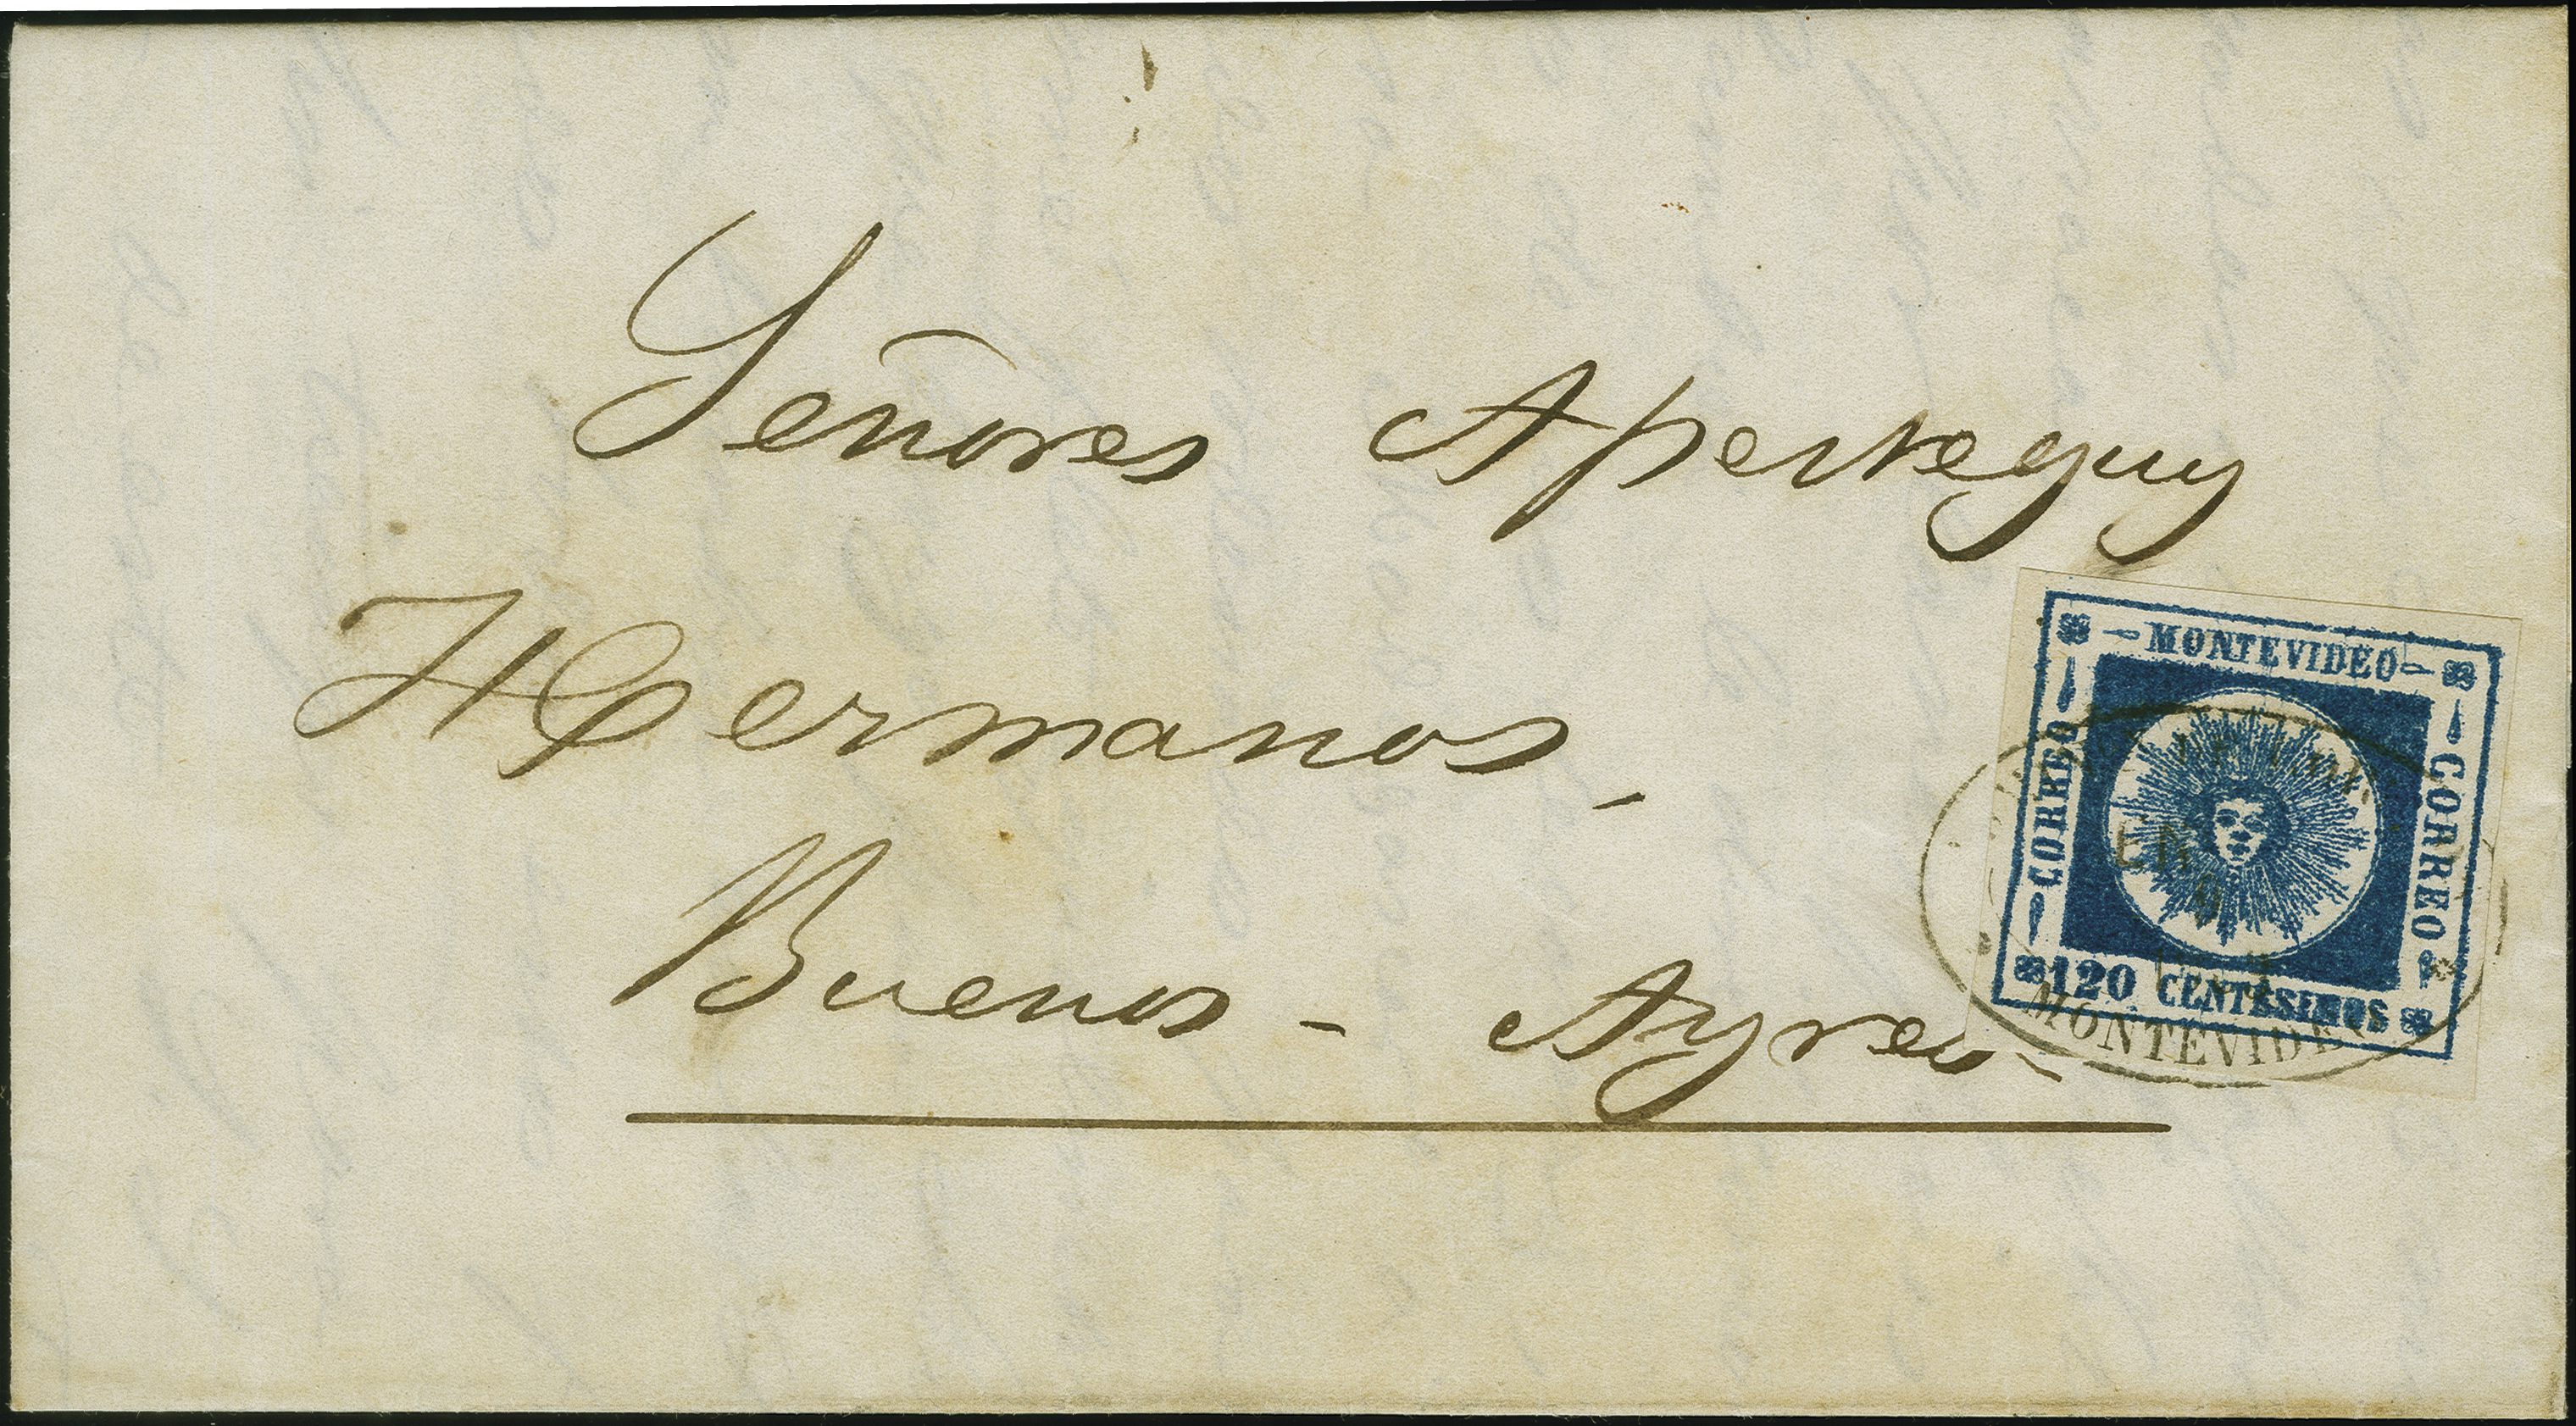 Señores Aperteguy
Hermanos_
Buenos - Ayres -
MONTEVIDEO
CORREO
CORREO
120 CENTESIMOS
EN
9
MONTEVIDEO